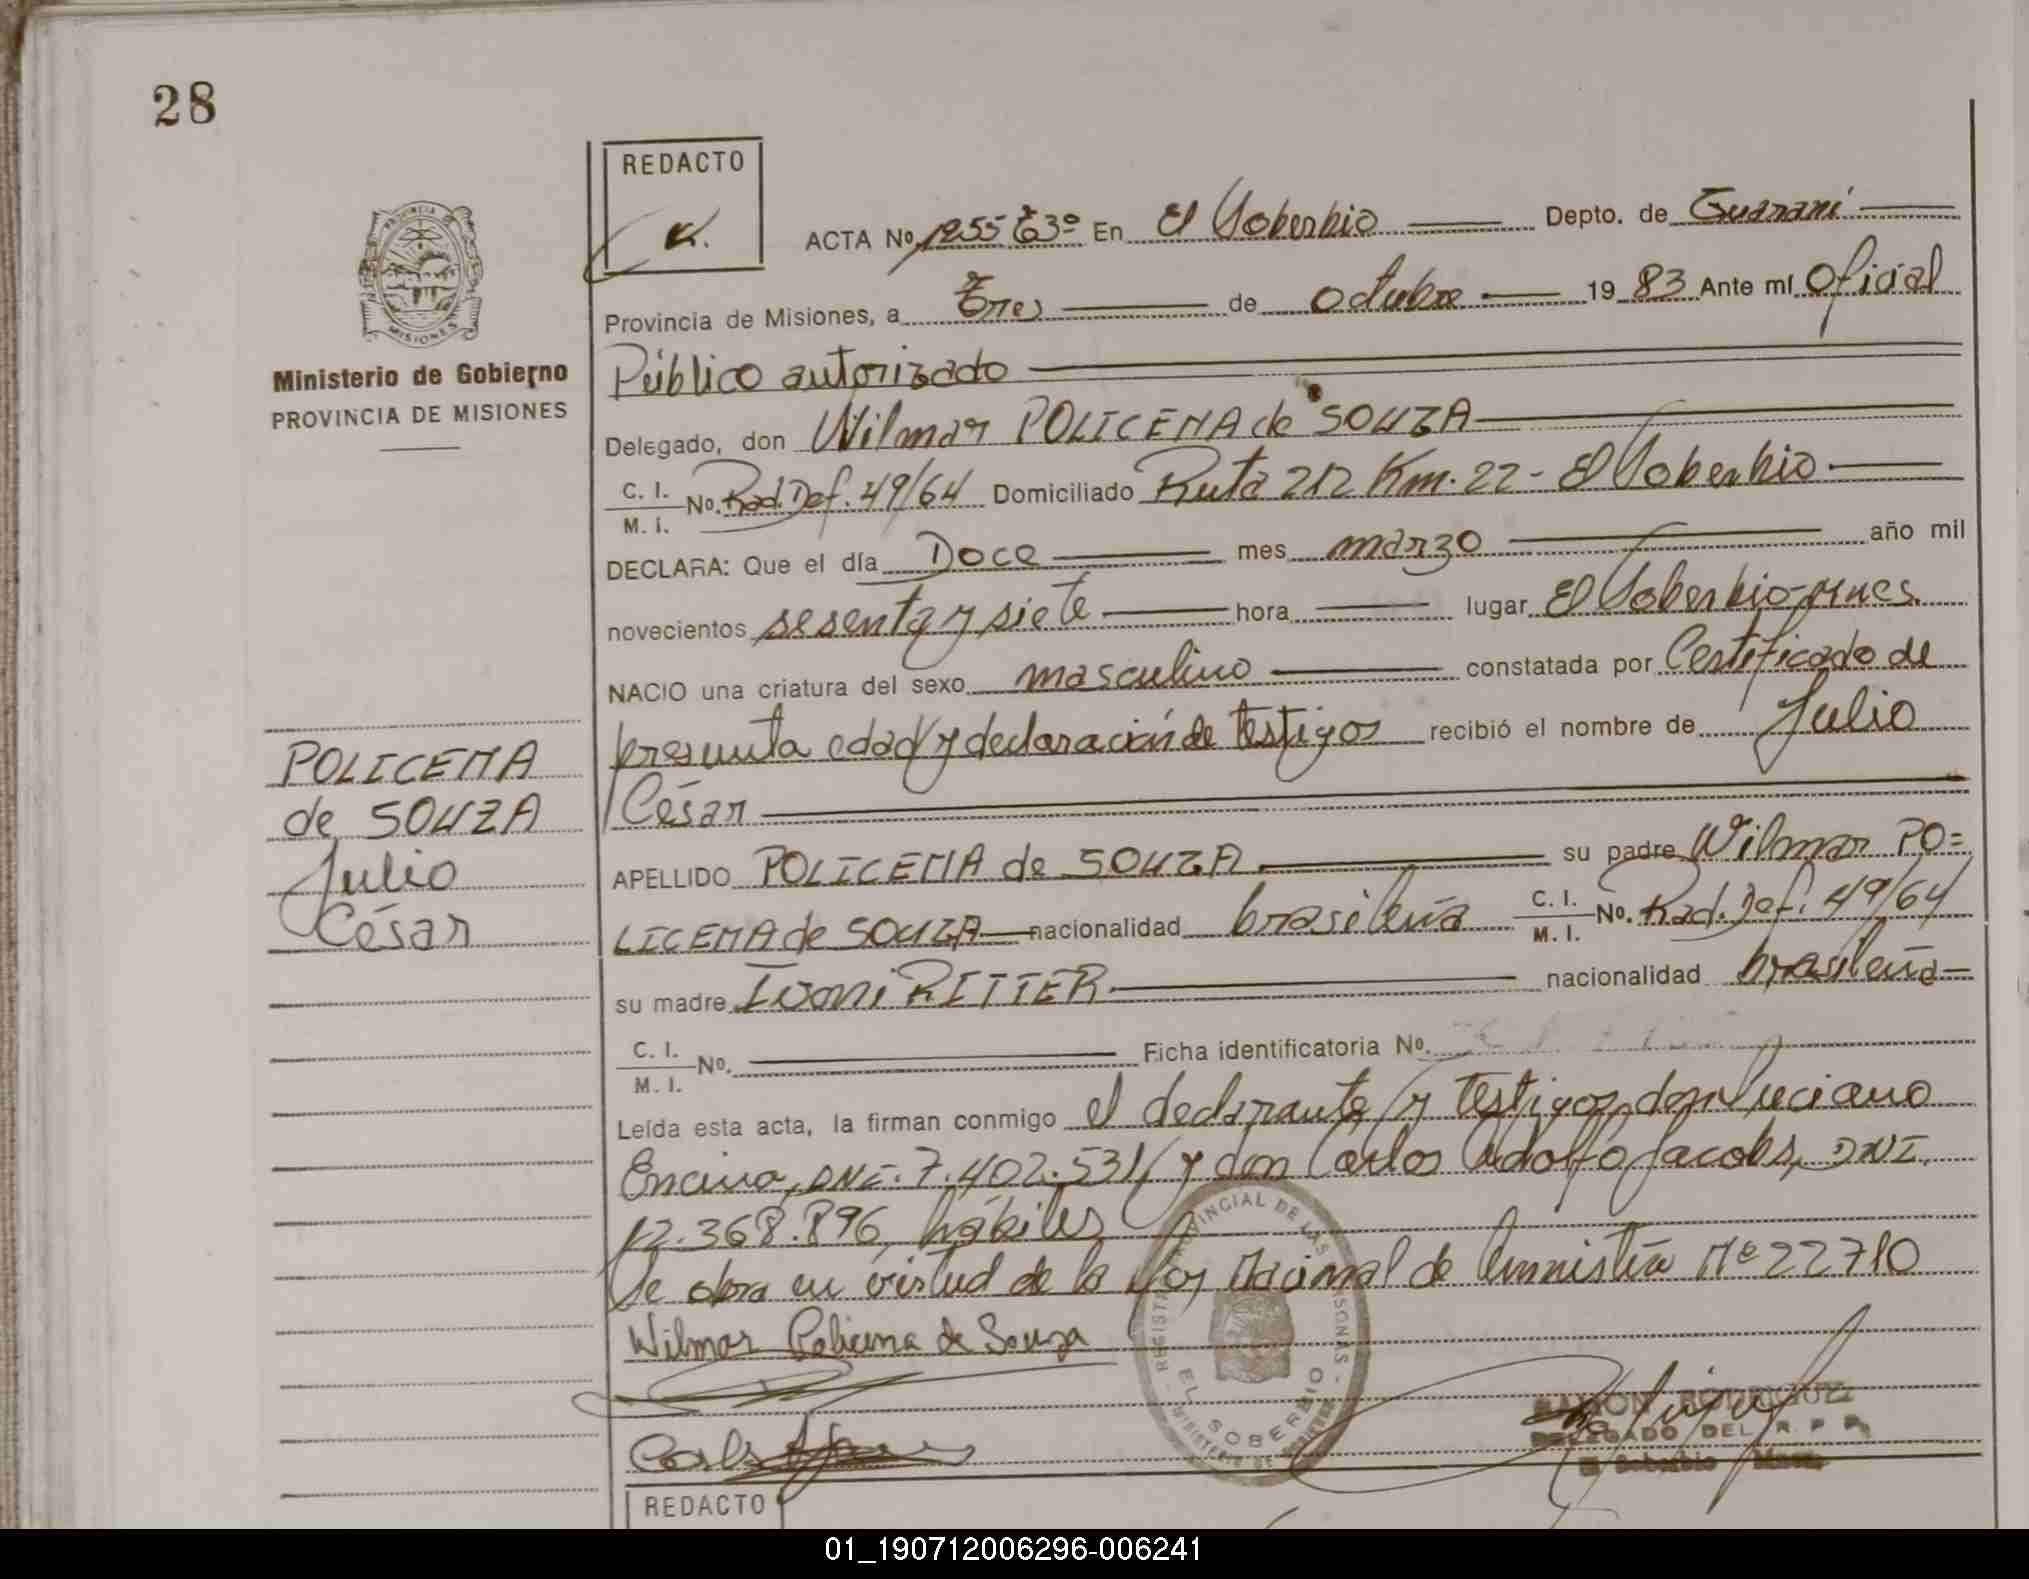 28
REDACTO
PROVINCIA DE
MISIONES
Ministerio de Gobierno
PROVINCIA DE MISIONES
ACTA Nº 1255 Tº3º En El Soberbio Depto. de Guaraní
Provincia de Misiones, a Tres de octubre 1983 Ante mí Oficial
Público autorizado
Delegado, don Wilmar POLICENA de SOUZA
C. I. M. I. Nº. Rad. Def. 49/64 Domiciliado Ruta 212 Km. 22 - El Soberbio
DECLARA: Que el día Doce mes marzo año mil
novecientos sesenta y siete hora lugar El Soberbio-Mnes.
NACIO una criatura del sexo masculino constatada por Certificado de
presunta edad y declaración de testigos recibió el nombre de Julio
César
POLICENA
de SOUZA
Julio
César
APELLIDO POLICENA de SOUZA su padre Wilmar PO=
LICENA de SOUZA nacionalidad brasileña C. I. M. I. Nº. Rad. Def. 49/64
su madre Ivoni RITTER nacionalidad brasileña
C. I. M. I. Nº. Ficha identificatoria Nº.
Leída esta acta, la firman conmigo el declarante y testigos, don Luciano
Encina, DNI. 7.402.531 y don Carlos Adolfo Jacobs, DNI.
12.368.896, hábiles
Se obra en virtud de la Ley Nacional de Amnistía Nº 22710
Wilmar Policena de Souza
REGISTRO PROVINCIAL DE LAS PERSONAS
EL SOBERBIO
RAMON RODRIGUEZ
DELEGADO DEL R. P. P.
El Soberbio
REDACTO
01_190712006296-006241